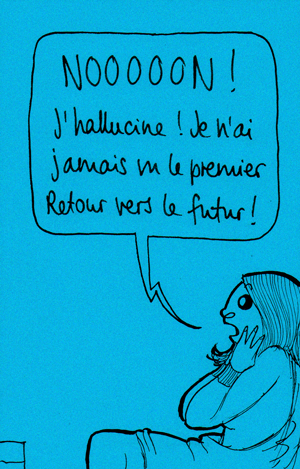 NOOOOON !
J'hallucine ! Je n'ai
jamais vu le premier
Retour vers le futur !